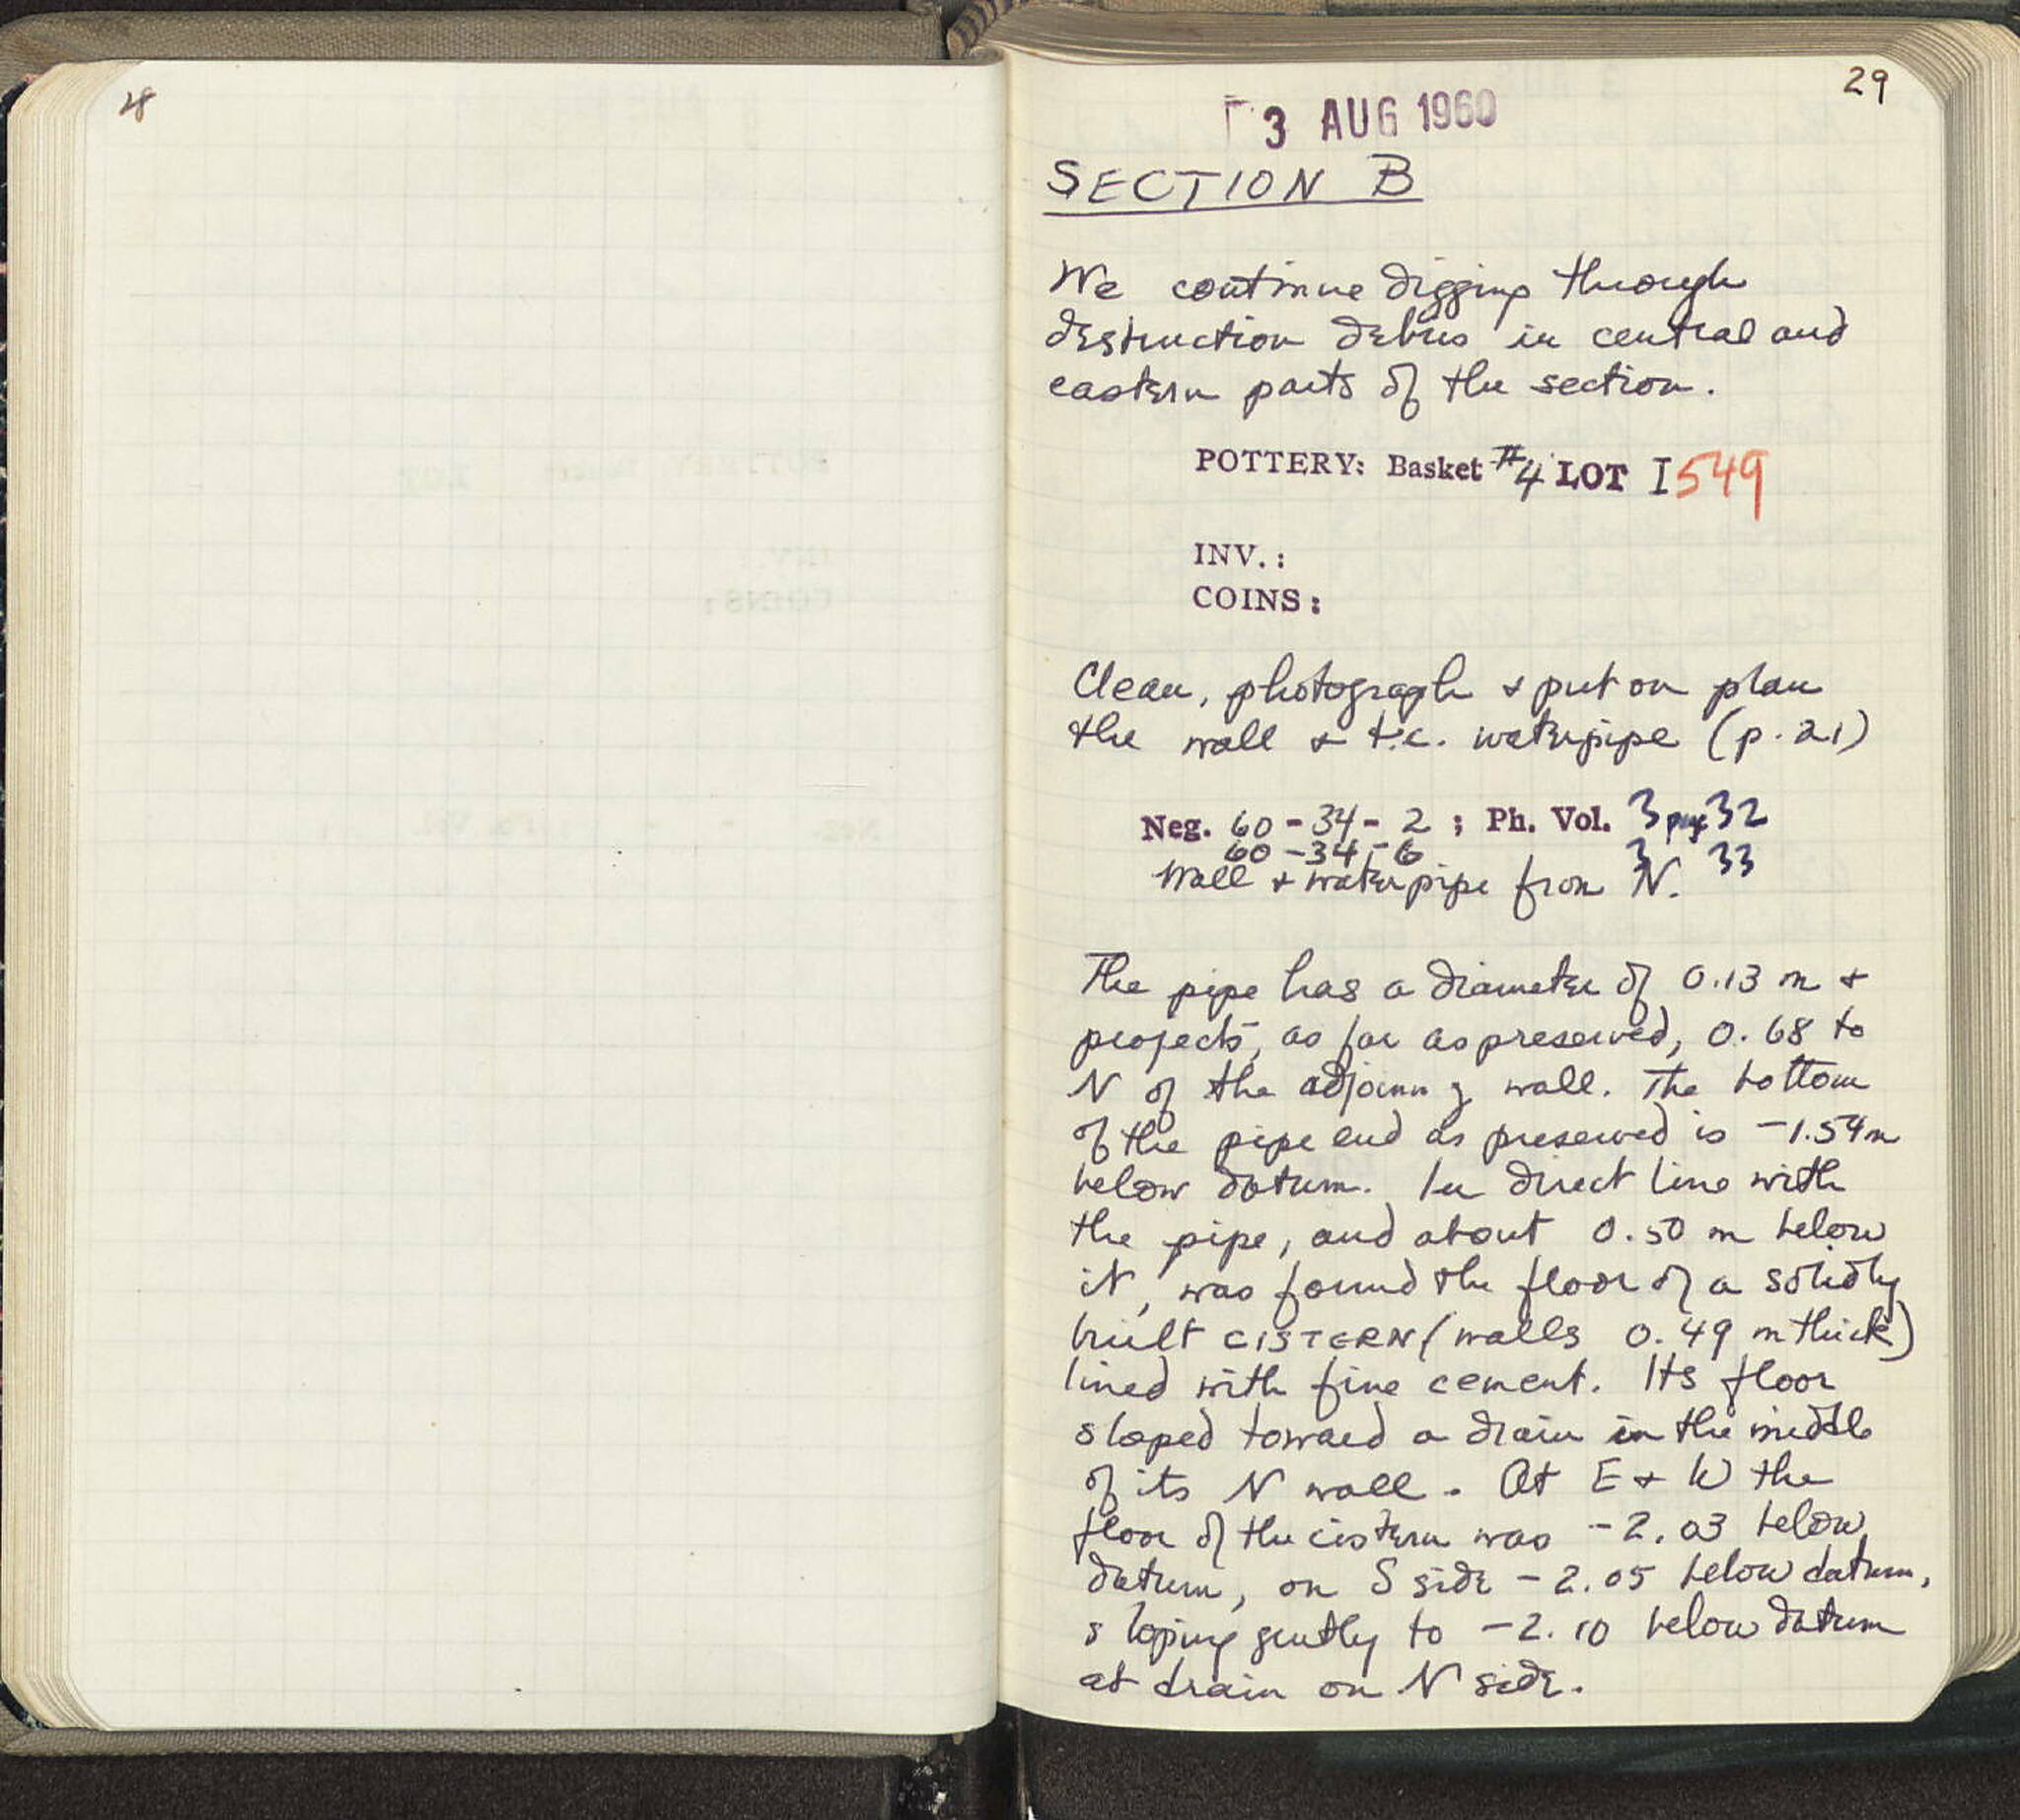 28
29
3 AUG 1960
SECTION B
We continue digging through
destruction debris in central and
eastern parts of the section.
POTTERY: Basket #4 LOT I 549
INV.:
COINS:
Clean, photograph & put on plan
the wall & t.c. waterpipe (p. 21)
Neg. 60-34-2 ; Ph. Vol. 3 pag 32
60-34-6 3 33
Wall & waterpipe from N.
The pipe has a diameter of 0.13 m &
projects, as far as preserved, 0.68 to
N of the adjoining wall. The bottom
of the pipe end as preserved is -1.54m
below datum. In direct line with
the pipe, and about 0.50 m below
it, was found the floor of a solidly
built CISTERN (walls 0.49 m thick)
lined with fine cement. Its floor
sloped toward a drain in the middle
of its N wall. At E & W the
floor of the cistern was -2.03 below
datum, on S side -2.05 below datum,
sloping gently to -2.10 below datum
at drain on N side.